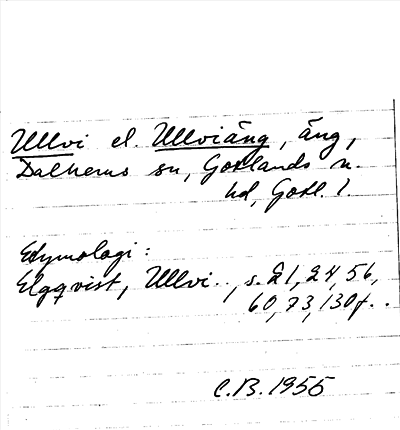 Ullvi el. Ullviäng, äng,
Dalhems sn, Gotlands n.
hd, Gotl. l.
Etymologi:
Elgqvist, Ullvi.., s. 21, 24, 56,
60, 73, 130f..
C.B. 1955